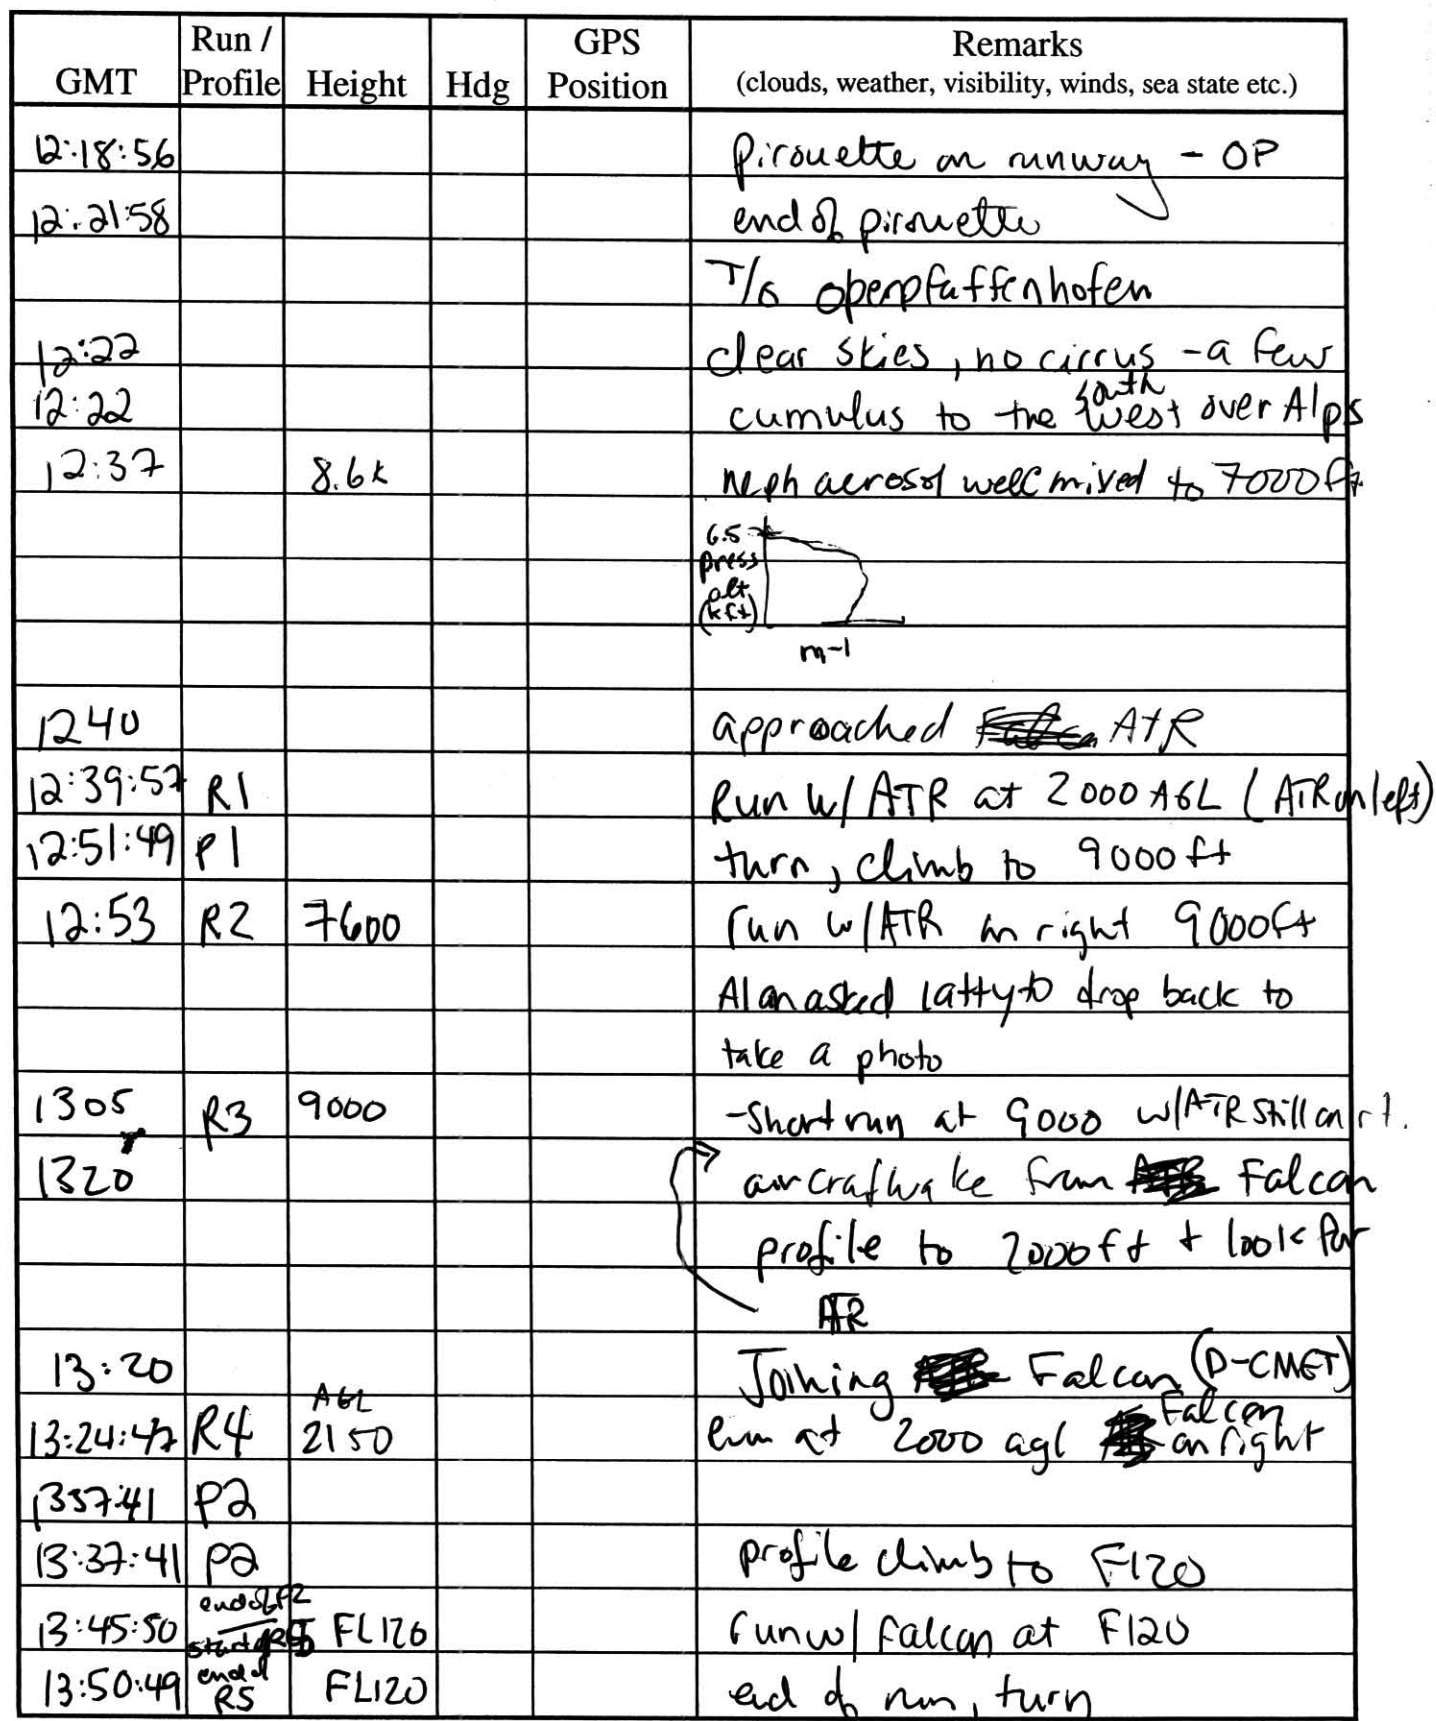 GMT Run / Profile Height Hdg GPS Position Remarks
(clouds, weather, visibility, winds, sea state etc.)
12:18:56 pirouette on runway - OP
12:21:58 end of pirouette
T/o operpfaffenhofen
12:22 clear skies, no cirrus - a few
12:22 cumulus to the south west over Alps
12:37 8.6k neph aerosol well mixed to 7000 ft
6.5
press
alt
(kft)
m-1
1240 approached ATR
12:39:57 R1 Run w/ ATR at 2000 AGL (ATR on left)
12:51:49 P1 turn, climb to 9000 ft
12:53 R2 7600 run w/ATR on right 9000ft
Alan asked to drop back to
take a photo
1305 R3 9000 -Short run at 9000 w/ATR still on rt.
1320 aircraft wake from Falcon
profile to 2000ft + look for
ATR
13:20 Joining Falcon (D-CMET)
AGL
13:24:47 R4 2150 Run at 2000 agl Falcon on right
1337:41 P2
13:37:41 P2 profile climb to F120
13:45:50 end of P2 start of R5 FL120 run w/ Falcon at F120
13:50:49 end of R5 FL120 end of run, turn